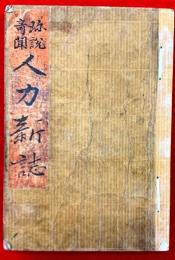 珍説
奇聞
人力新誌